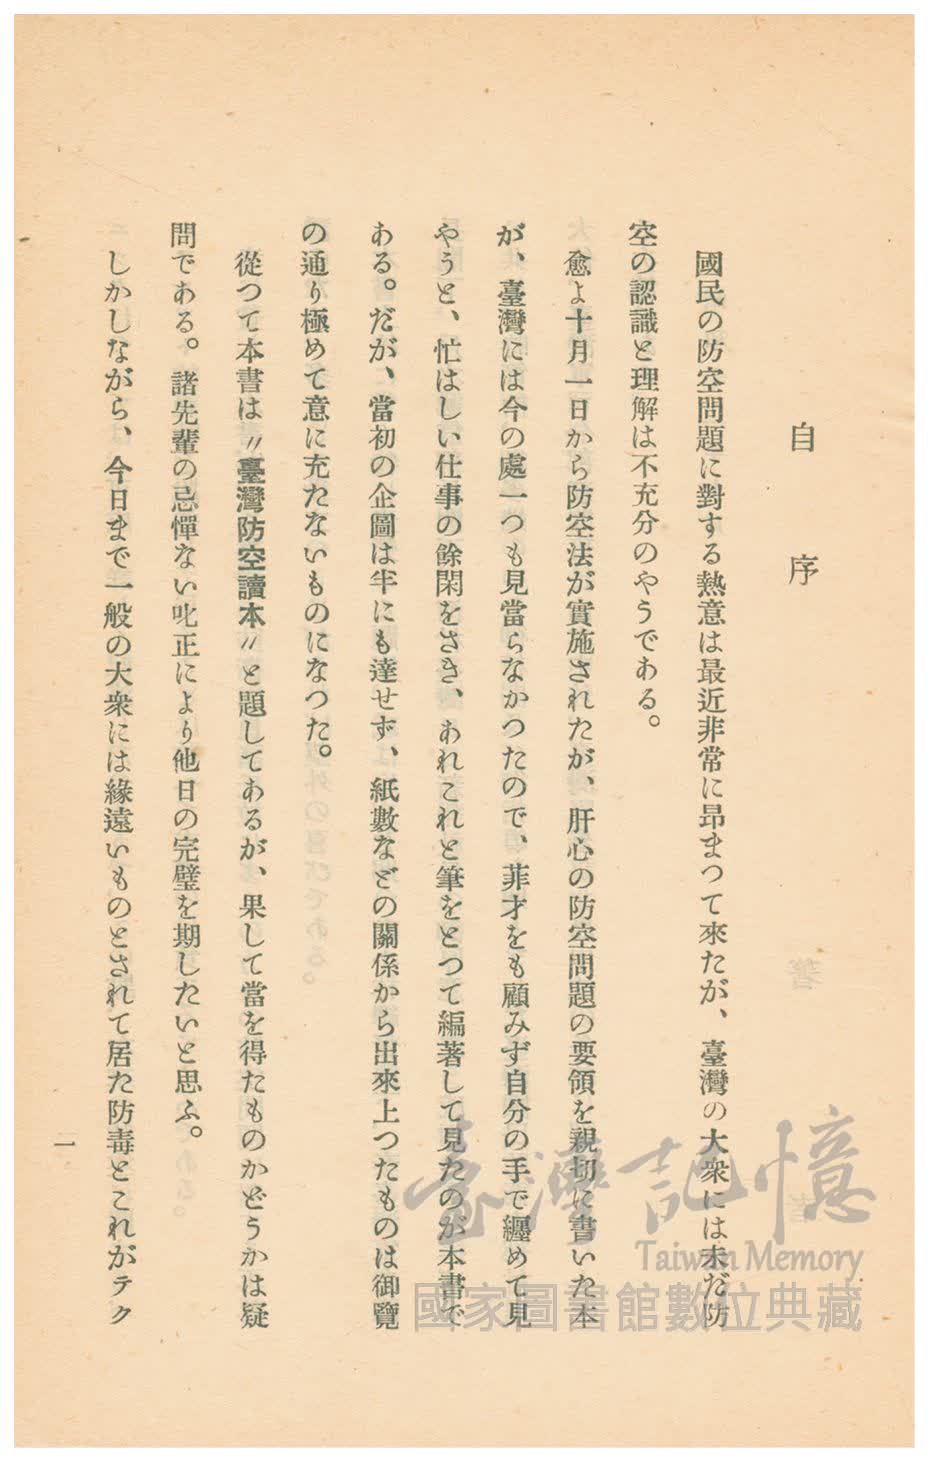 自序
國民の防空問題に對する熱意は最近非常に昂まつて來たが、臺灣の大衆には未だ防
空の認識と理解は不充分のやうである。
愈よ十月一日から防空法が實施されたが、肝心の防空問題の要領を親切に書いた本
が、臺灣には今の處一つも見當らなかつたので、菲才をも顧みず自分の手で纒めて見
やうと、忙はしい仕事の餘閑をさき、あれこれと筆をとつて編著して見たのが本書で
ある。だが、當初の企圖は半にも達せず、紙數などの關係から出來上つたものは御覽
の通り極めて意に充たないものになつた。
從つて本書は〃臺灣防空讀本〃と題してあるが、果して當を得たものかどうかは疑
問である。諸先輩の忌憚ない叱正により他日の完璧を期したいと思ふ。
しかしながら、今日まで一般の大衆には緣遠いものとされて居た防毒とこれがテク
一
臺灣記憶
Taiwan Memory
國家圖書館數位典藏